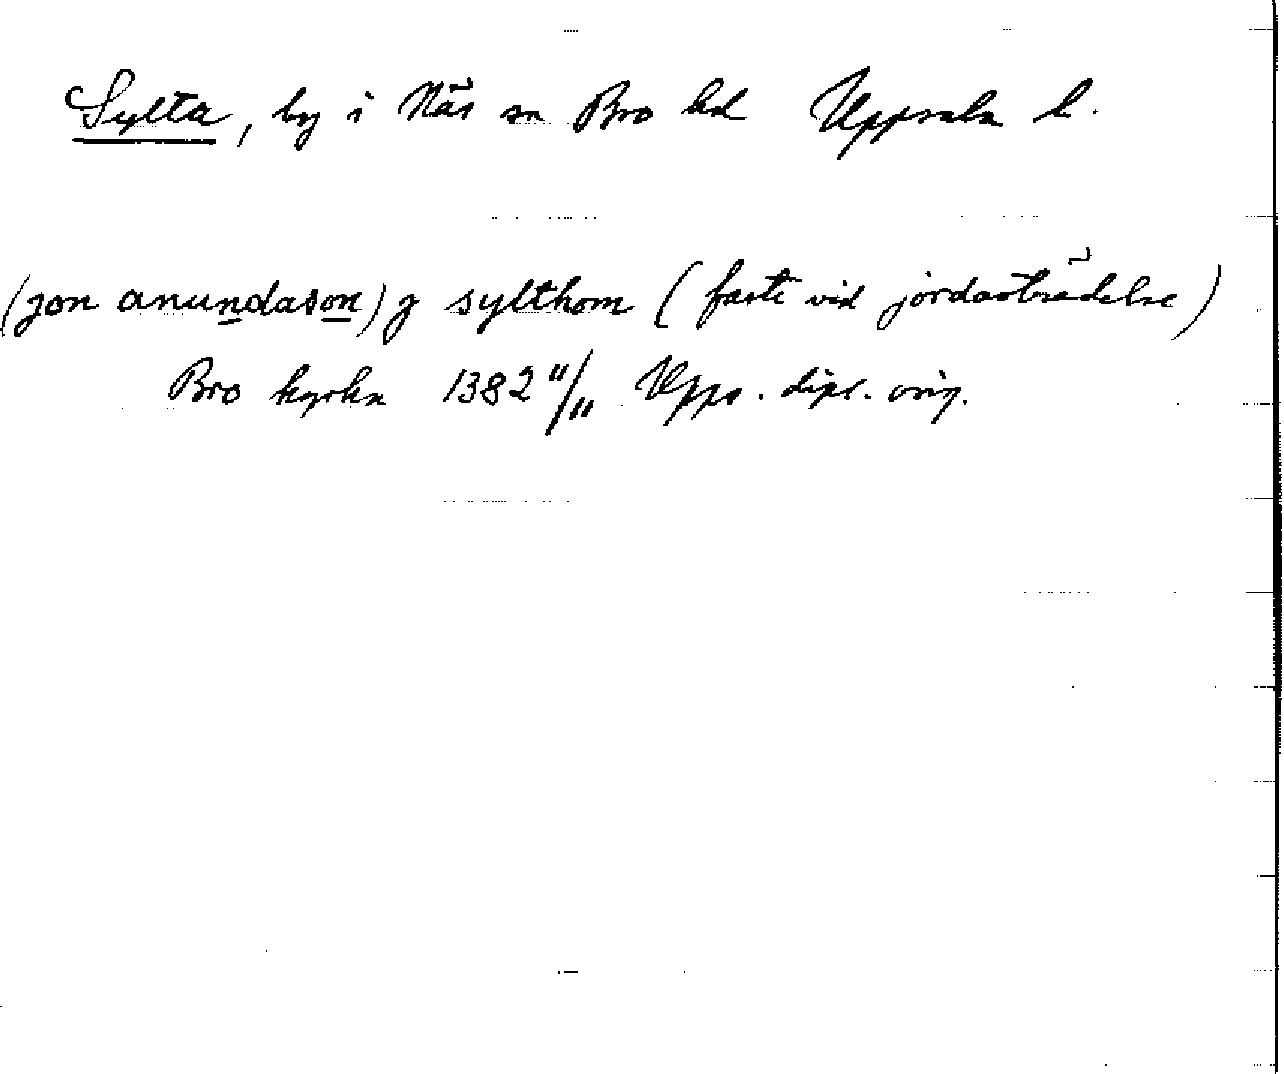 Sylta, by i Näs sn Bro hd Uppsala l.
(jon anundason) j sylthom (faste vid jordaöträdelse)
Bro kyrka 1382 11/11 Upps. dipl. orig.